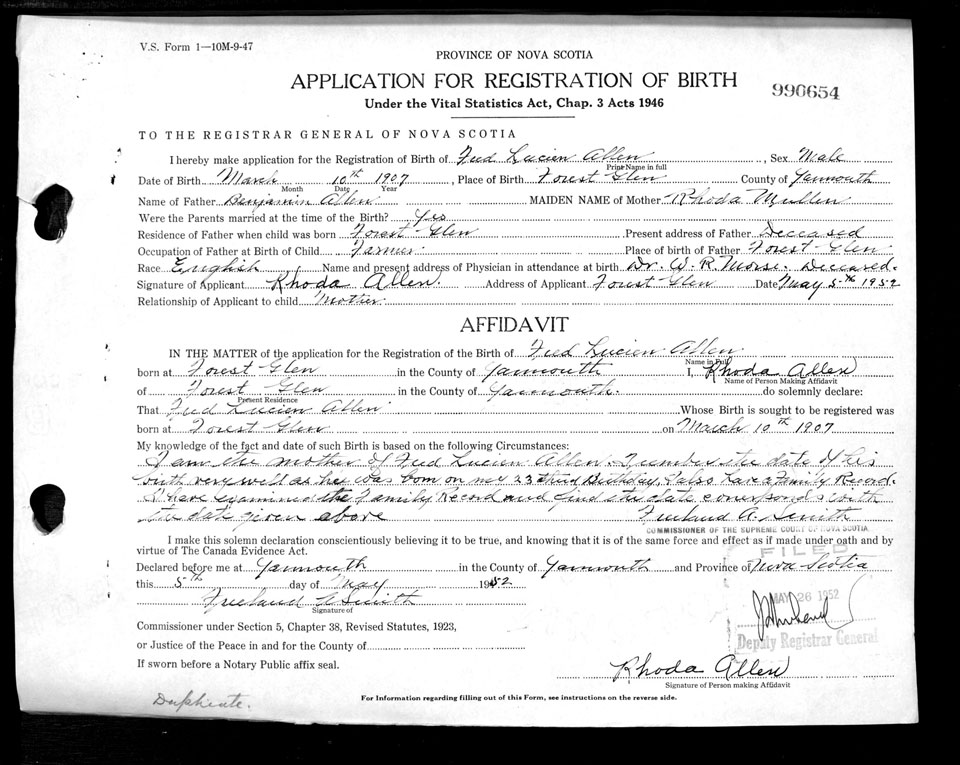 V.S. Form 1—10M-9-47
PROVINCE OF NOVA SCOTIA
APPLICATION FOR REGISTRATION OF BIRTH
990654
Under the Vital Statistics Act, Chap. 3 Acts 1946
TO THE REGISTRAR GENERAL OF NOVA SCOTIA
I hereby make application for the Registration of Birth of Fred Lucien Allen, Sex Male
Print Name in full
Date of Birth March 10th 1907, Place of Birth Forest Glen County of Yarmouth
Month Date Year
Name of Father Benjamin Allen MAIDEN NAME of Mother Rhoda Mullen
Were the Parents married at the time of the Birth? Yes
Residence of Father when child was born Forest Glen Present address of Father Deceased
Occupation of Father at Birth of Child Farmer. Place of birth of Father Forest Glen
Race English Name and present address of Physician in attendance at birth Dr. W. R. Morse. Deceased.
Signature of Applicant Rhoda Allen. Address of Applicant Forest Glen Date May 5th 1952
Relationship of Applicant to child Mother.
AFFIDAVIT
IN THE MATTER of the application for the Registration of the Birth of Fred Lucien Allen.
Name in Full
born at Forest Glen in the County of Yarmouth I, Rhoda Allen
Name of Person Making Affidavit
of Forest Glen in the County of Yarmouth. do solemnly declare:
Present Residence
That Fred Lucien Allen Whose Birth is sought to be registered was
born at Forest Glen on March 10th 1907
My knowledge of the fact and date of such Birth is based on the following Circumstances:
I am the mother of Fred Lucien Allen the date of his
birth very well as he was born on my 23 third Birthday. I also have a Family Record.
I have examined the Family Record and find the date corresponds with
the date given above Freeland A. Smith
COMMISSIONER OF THE SUPREME COURT OF NOVA SCOTIA
I make this solemn declaration conscientiously believing it to be true, and knowing that it is of the same force and effect as if made under oath and by
virtue of The Canada Evidence Act.
FILED
Declared before me at Yarmouth in the County of Yarmouth and Province of Nova Scotia
this 5th day of May 1952
MAY 26 1952
Freeland A Smith
Signature of
Deputy Registrar General
Commissioner under Section 5, Chapter 38, Revised Statutes, 1923,
or Justice of the Peace in and for the County of
If sworn before a Notary Public affix seal.
Rhoda Allen
Signature of Person making Affidavit
Duplicate.
For Information regarding filling out of this Form, see instructions on the reverse side.